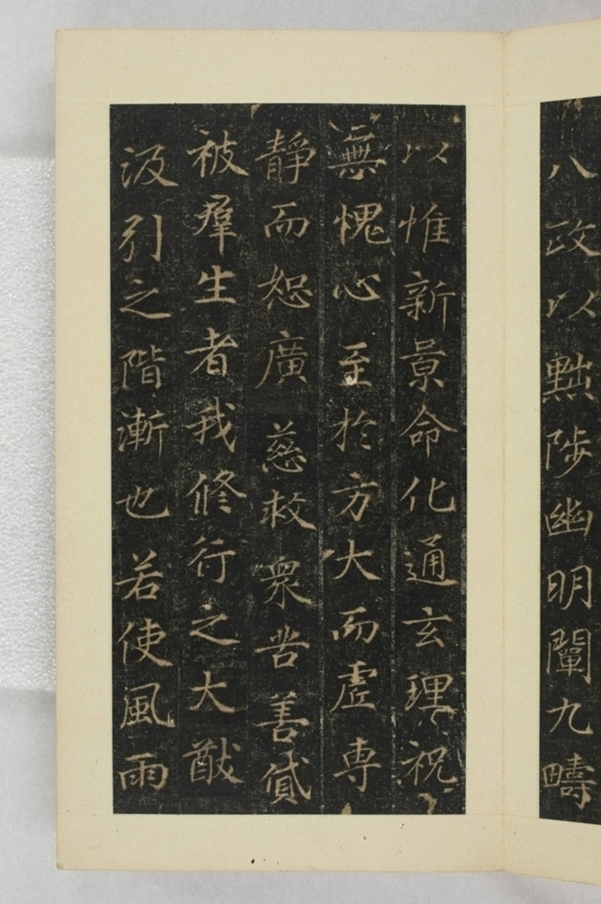 八政以黜陟幽明闡九疇
以惟新景命化通玄理祝
無愧心至於方大而虛專
靜而恕廣慈救眾苦善貸
被羣生者我修行之大猷
汲引之階漸也若使風雨